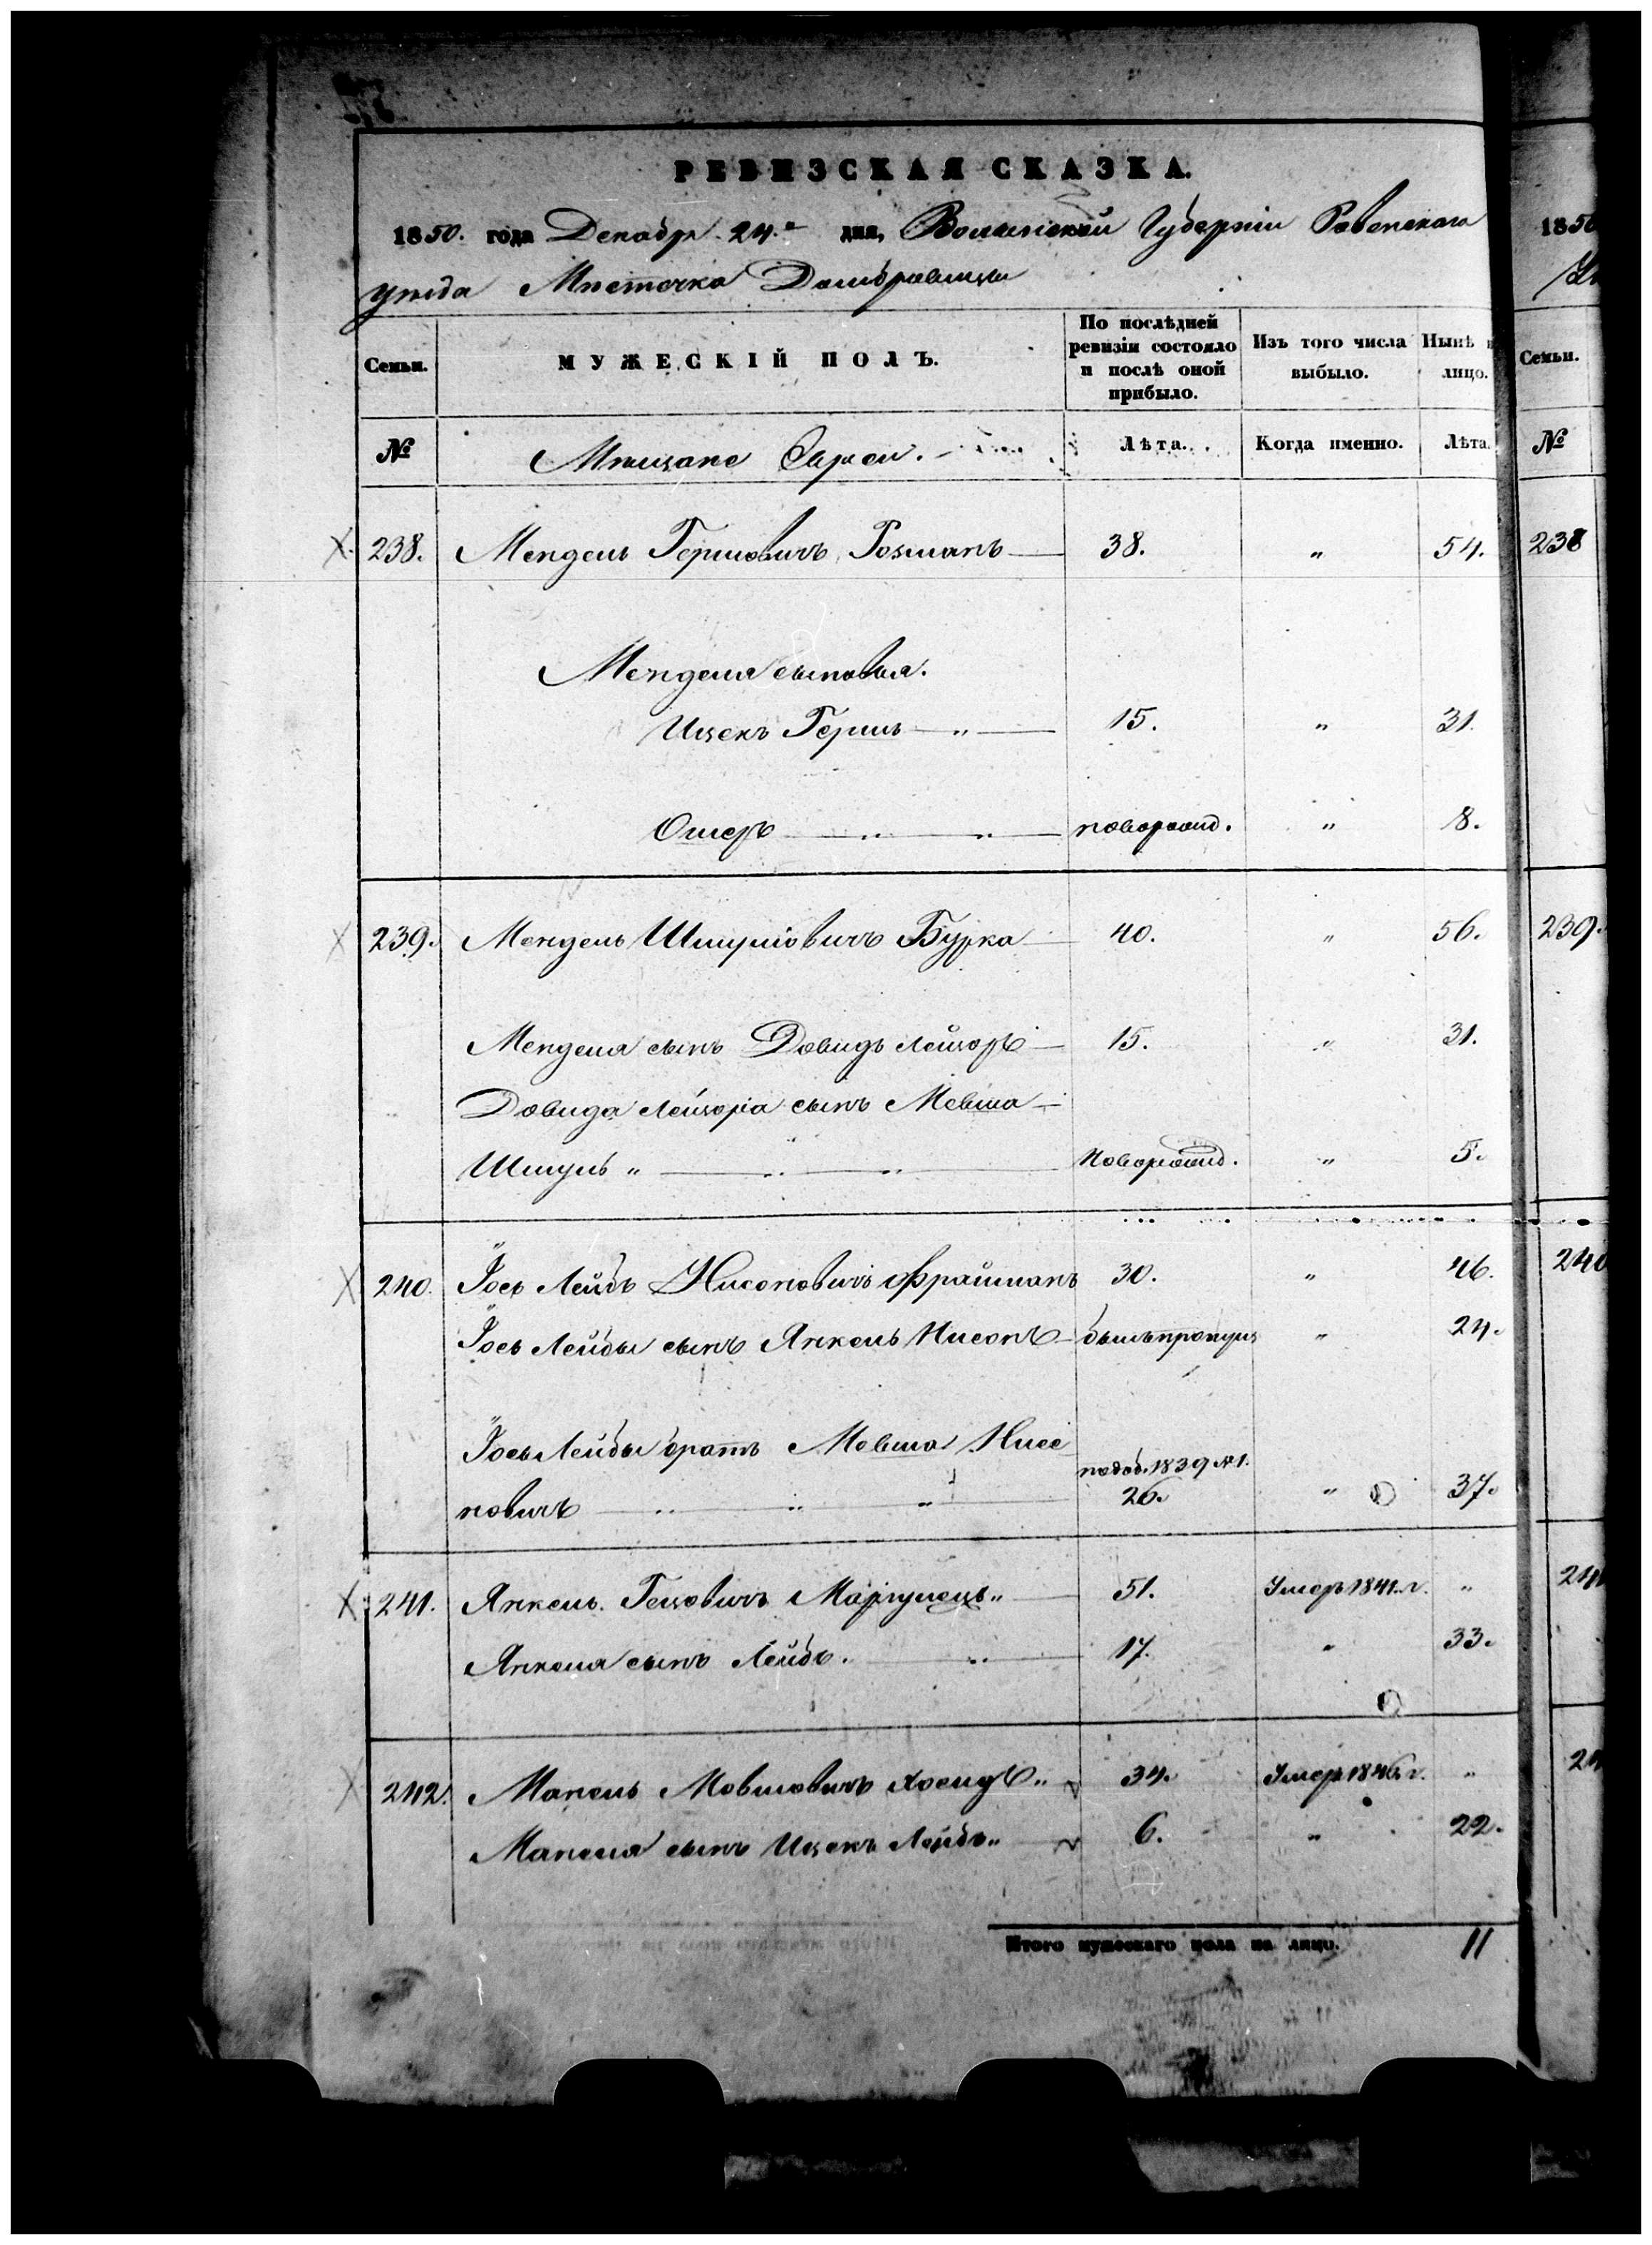 РЕВИЗСКАЯ СКАЗКА.
1850. года Декабр. 24.го дня, Волынской Губерніи Ровенскаго
уѣзда Мѣстечка Домбровицы
Семьи.
МУЖЕСКІЙ ПОЛЪ.
По послѣдней ревизіи состояло и послѣ оной прибыло.
Изъ того числа выбыло.
Нынѣ лицо.
Семьи.
№ Мѣщане Евреи. Лѣта. Когда именно. Лѣта. №
238. Мендель Гершовичъ Розманъ 38. „ 54. 238
Менделя сыновья.
Ицекъ Гершъ „ 15. „ 31.
Ошеръ „ „ новорожд. „ 8.
239. Мендель Шмулiовичъ Бурка 40. „ 56. 239.
Менделя сынъ Довидъ Лейзоръ 15. „ 31.
Довида Лейзора сынъ Мовша
Шмуль „ „ „ новорожд. „ 5.
240. Іось Лейбъ Нисоновичъ Фрайманъ 30. „ 46. 240
Іось Лейбы сынъ Янкель Нисонъ былъ пропущ „ 24.
Іось Лейбы братъ Мовша Нисо
подоб. 1839 №1.
новичъ „ „ „ 26. „ 37.
241. Янкель Гецовичъ Маргулецъ „ 51. Умеръ 1841. г. „ 241
Янкеля сынъ Лейбъ. „ 17. „ 33.
242. Манель Мовшовичъ Хосидъ „ 34. Умеръ 1846. г. „ 24
Манеля сынъ Ицекъ Лейбъ „ 6. „ 22.
Итого мужескаго пола на лицо. 11